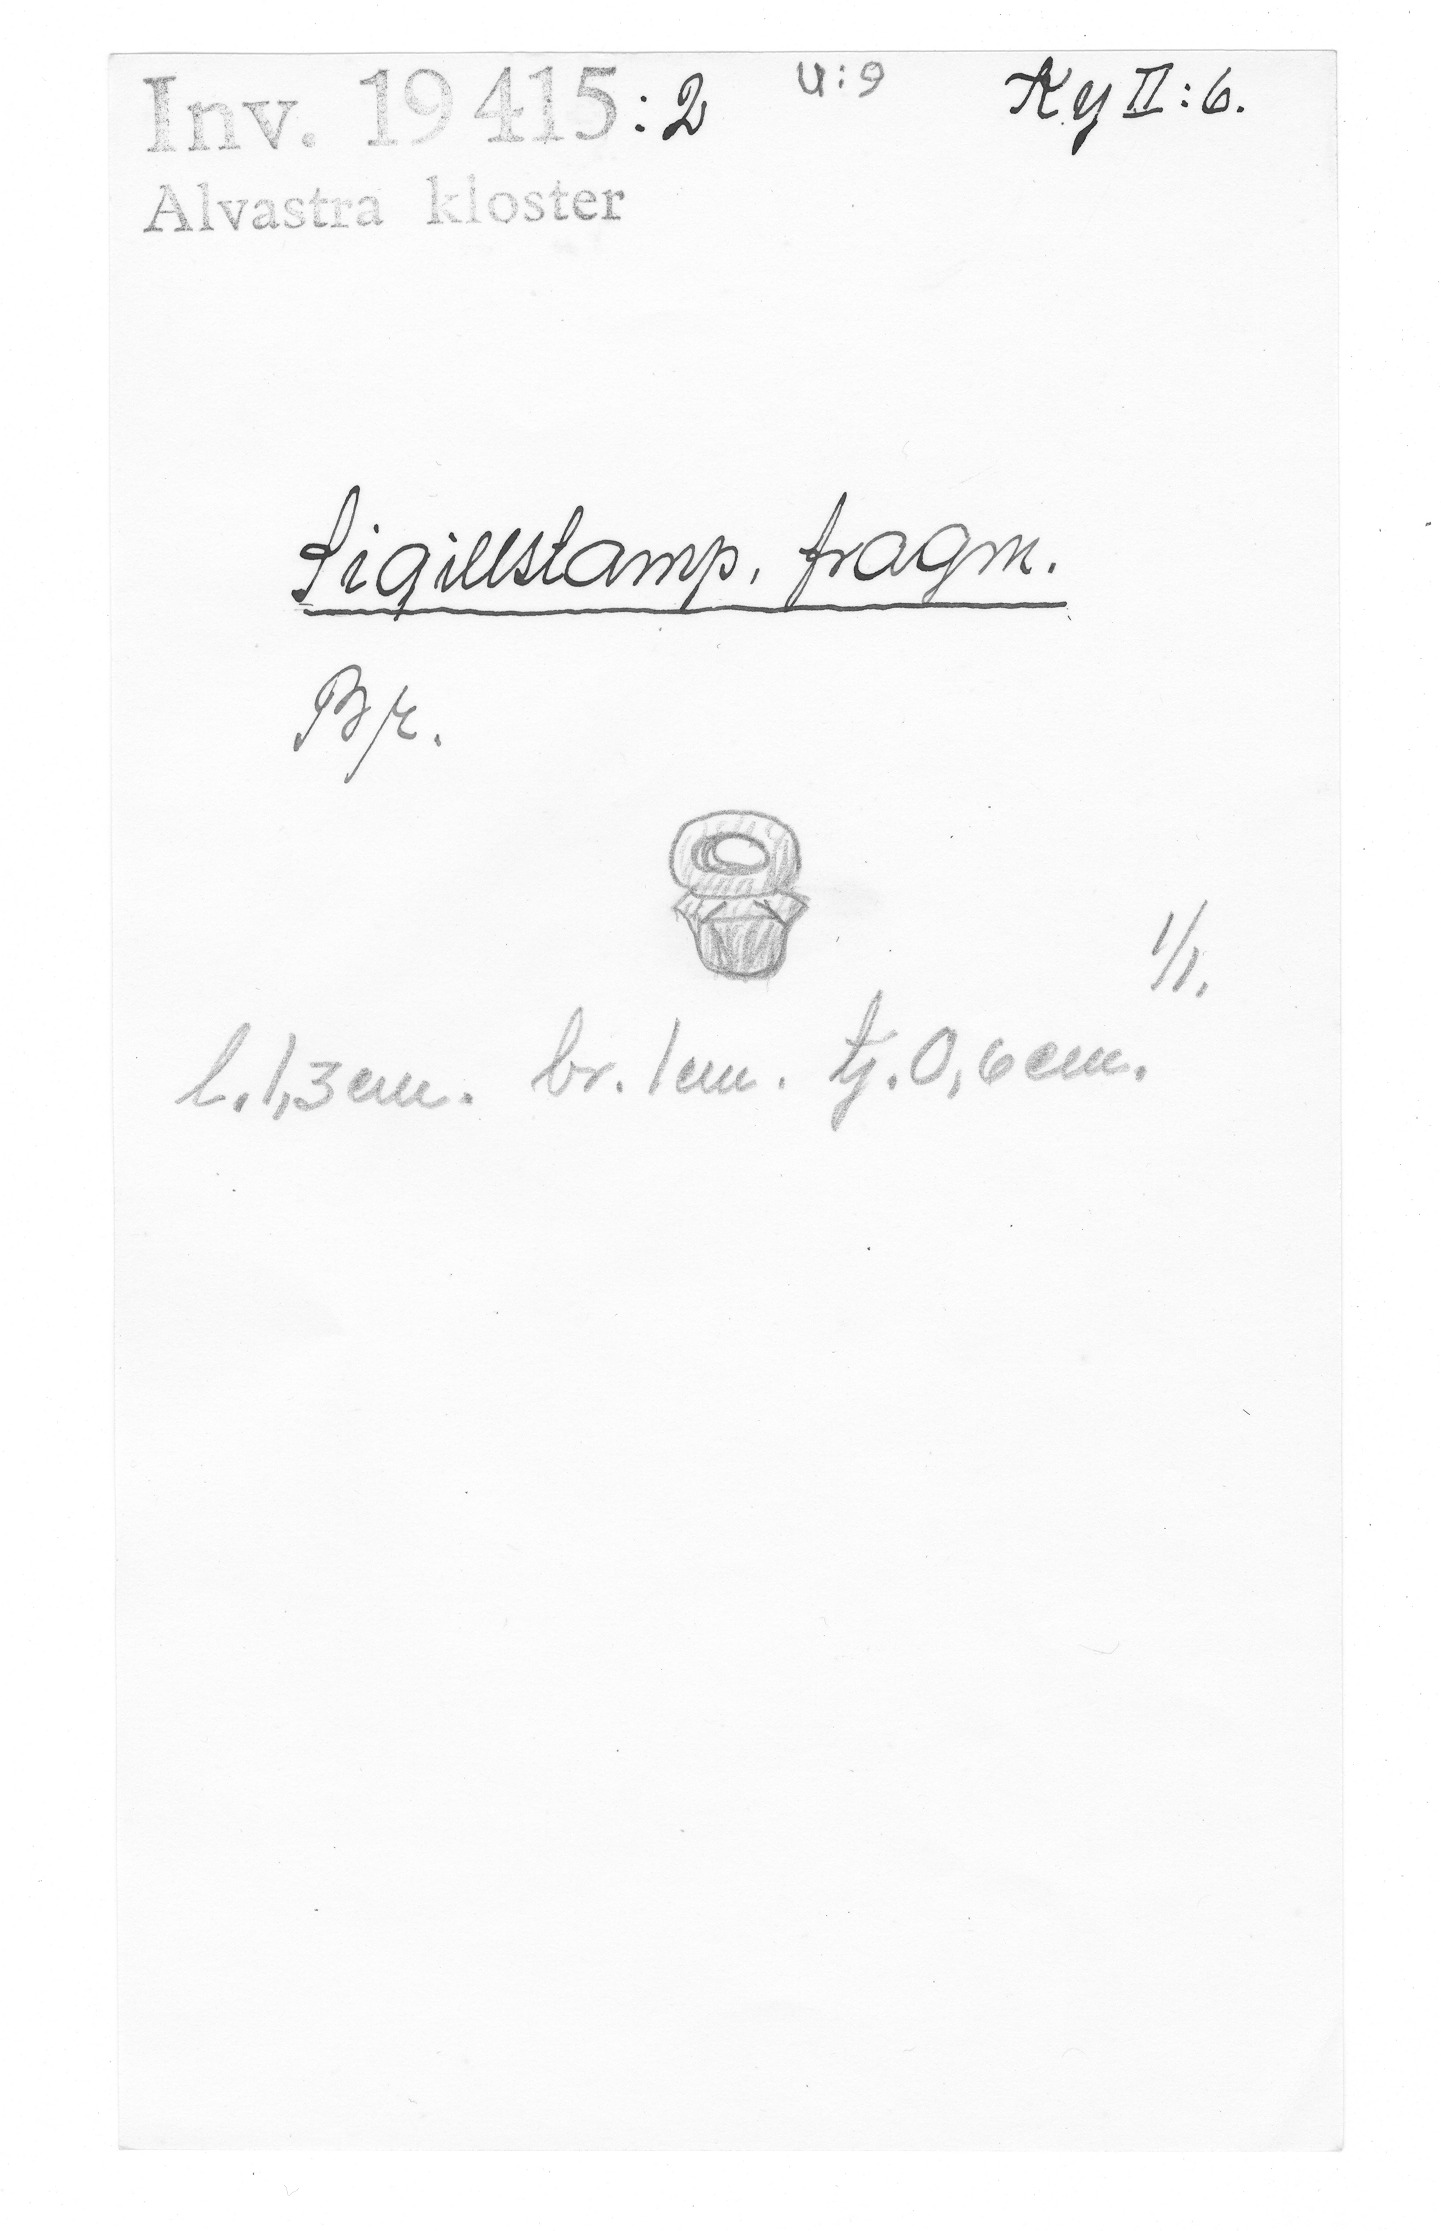 Inv. 19 415:2 U:9 Ky II:6.
Alvastra kloster
Sigillstamp, fragm.
Br.
1/1.
l. 1,3 cm. br. 1 cm. tj. 0,6 cm.